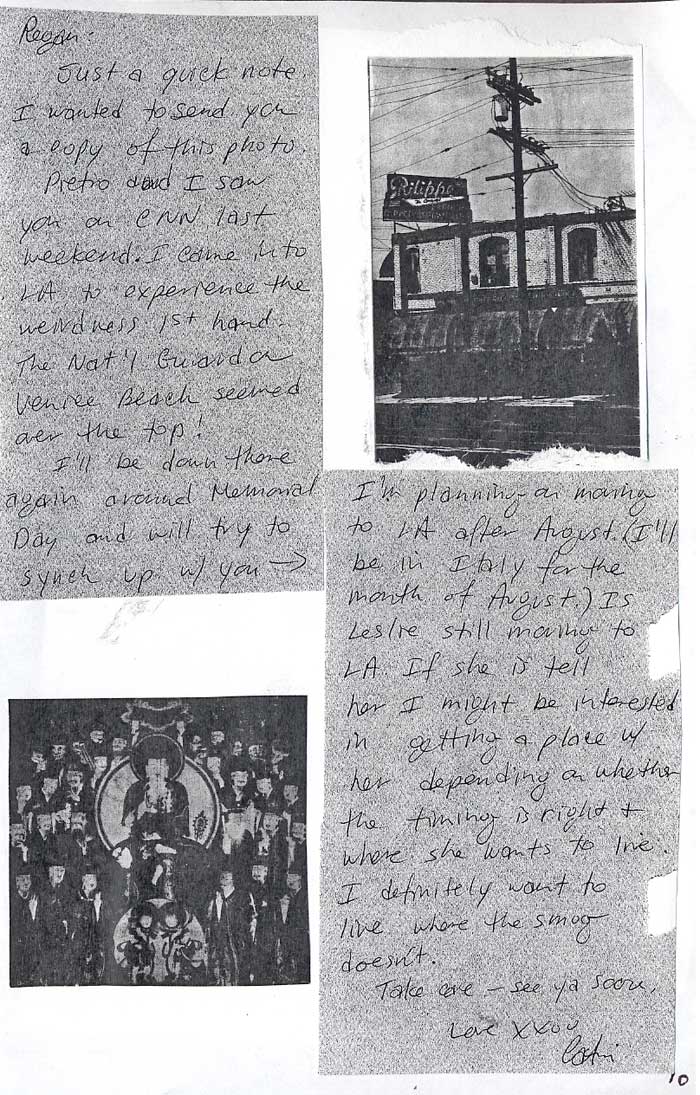 Regan:
Just a quick note.
I wanted to send you
a copy of this photo.
Pietro and I saw
you on CNN last
weekend. I came into
LA to experience the
weirdness 1st hand.
The Nat'l Guard on
Venice Beach seemed
over the top!
I'll be down there
again around Memorial
Day and will try to
synch up w/ you →
Philippe
I'm planning on moving
to LA after August. (I'll
be in Italy for the
month of August.) Is
Leslie still moving to
LA. If she is tell
her I might be interested
in getting a place w/
her depending on whether
the timing is right +
where she wants to live.
I definitely want to
live where the smog
doesn't.
Take care – see ya soon,
Love XXOO
10